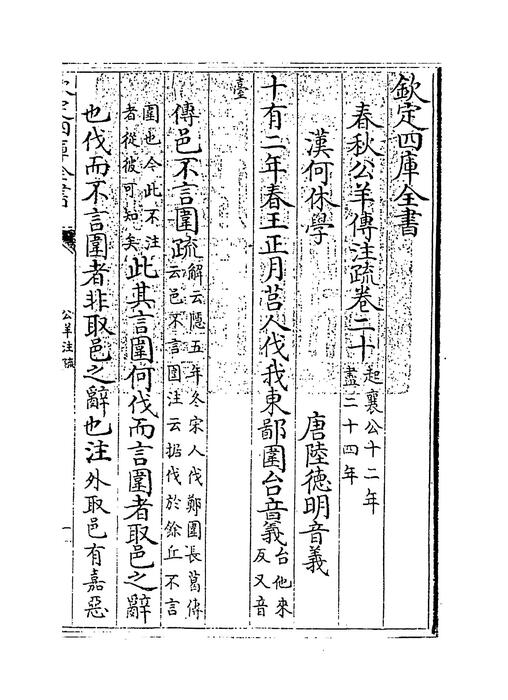 欽定四庫全書
春秋公羊傳注疏卷二十起襄公十二年盡二十四年
漢何休學　唐陸德明音義
十有二年春王正月莒人伐我東鄙圍台音義台他來反又音
臺
傳邑不言圍疏解云隱五年冬宋人伐鄭圍長葛傳云邑不言圍注云据伐於餘丘不言
圍也今此不注者從彼可知矣此其言圍何伐而言圍者取邑之辭
也伐而不言圍者非取邑之辭也注外取邑有嘉惡
欽定四庫全書
公羊注疏
一